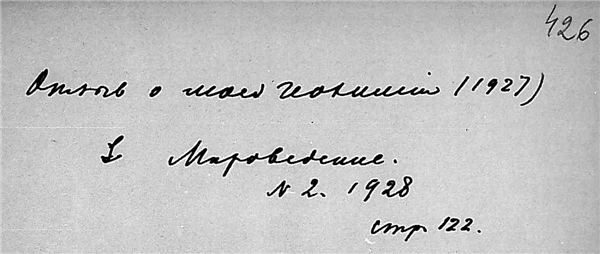 426
Отзыв о моей геохимии (1927)
в Мироведение.
N 2. 1928
стр. 122.